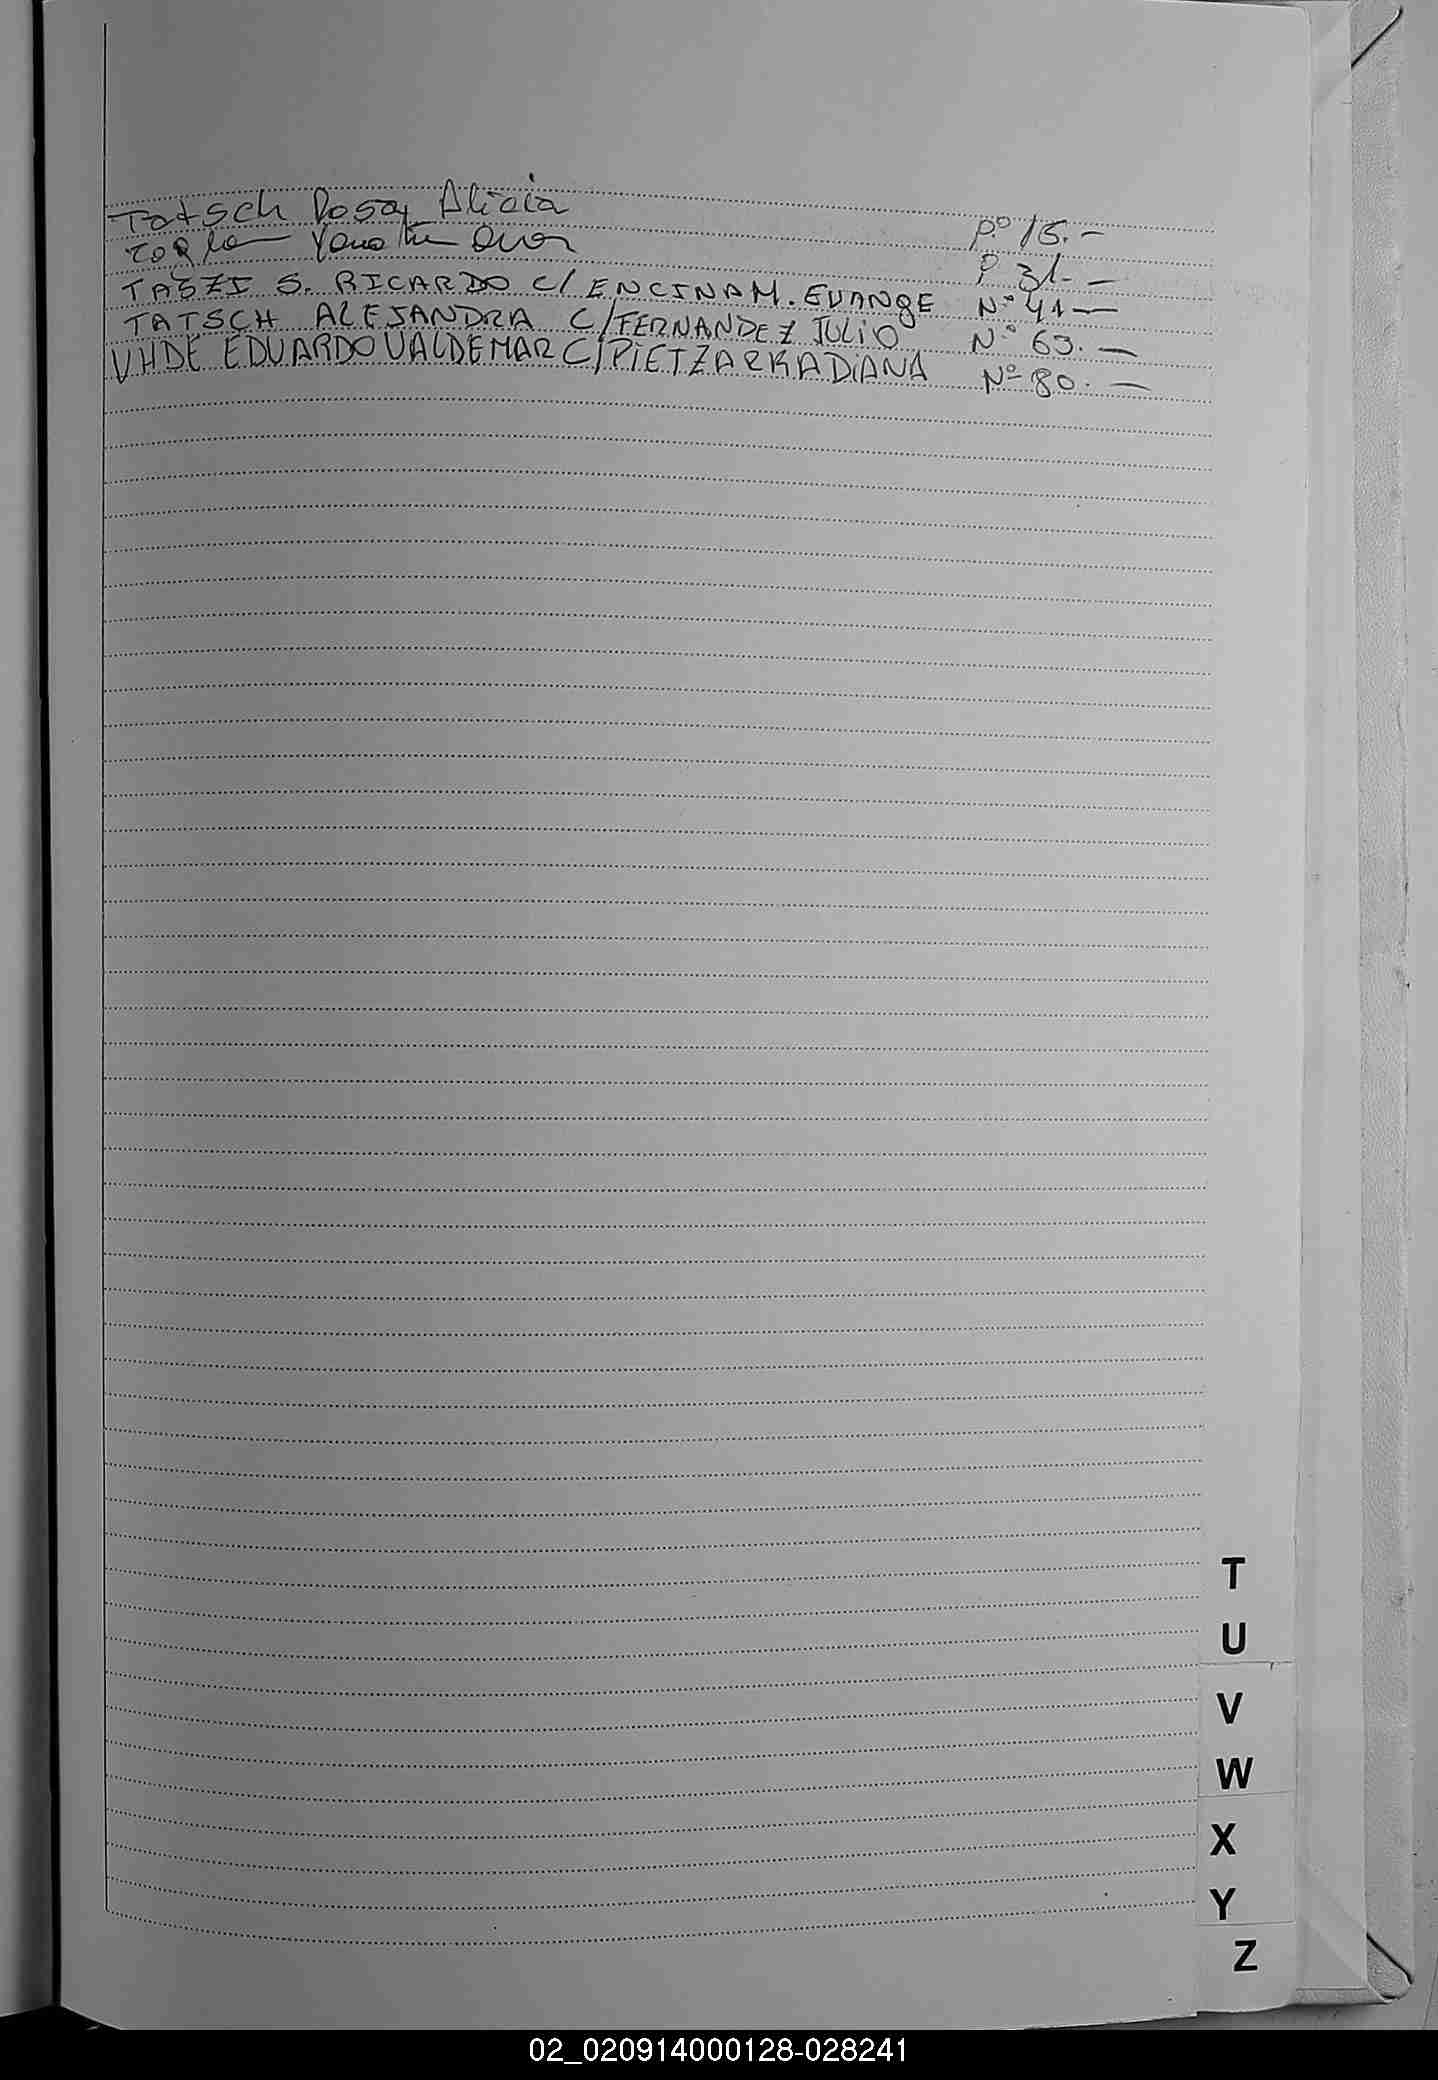 Tatsch Rosa Alicia Pº 15.-
Pº 31.-
TASZI S. RICARDO C/ ENCINA M. EVANGE Nº 41-
TATSCH ALEJANDRA C/FERNANDEZ JULIO Nº 63.-
UHDE EDUARDO VALDEMAR C/PIETZARKA DIANA Nº 80.-
T
U
V
W
X
Y
Z
02_020914000128-028241